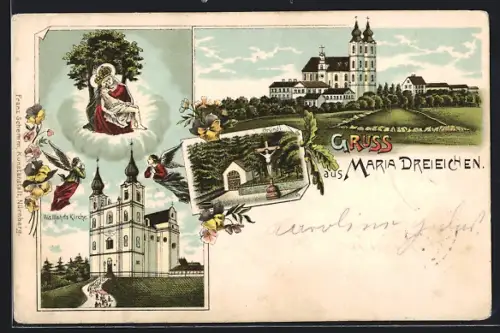 GRUSS
aus MARIA DREIEICHEN.
Wallfahrts Kirche.
Franz Schemm, Kunstanstalt, Nürnberg.